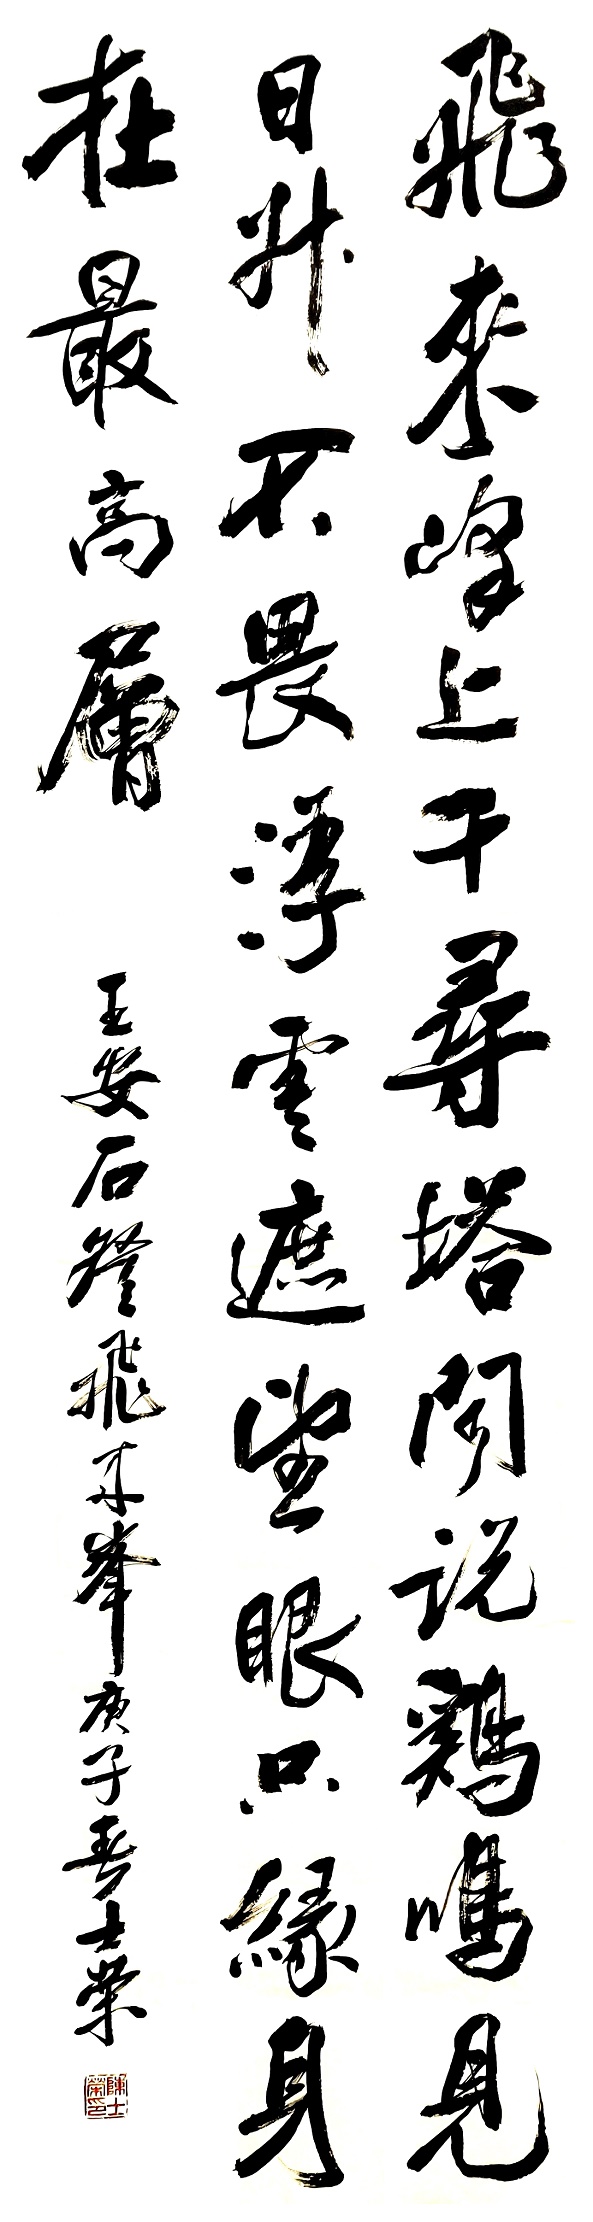 飛來峰上千尋塔聞說鷄鳴見
日升不畏浮雲遮望眼只緣身
在最高層
王安石登飛來峯庚子春士榮
陳士榮印